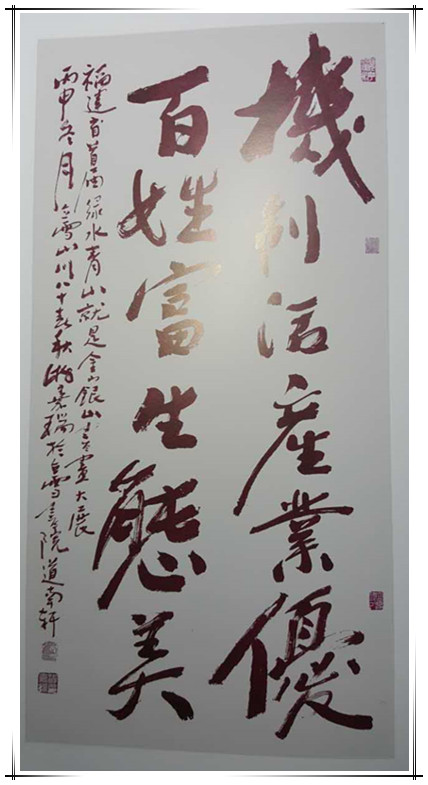 機制活產業優
百姓富生態美
福建省首届绿水青山就是金山银山書畫大展
丙申冬月立雪山川八十春秋游嘉瑞於立雪書院道南轩